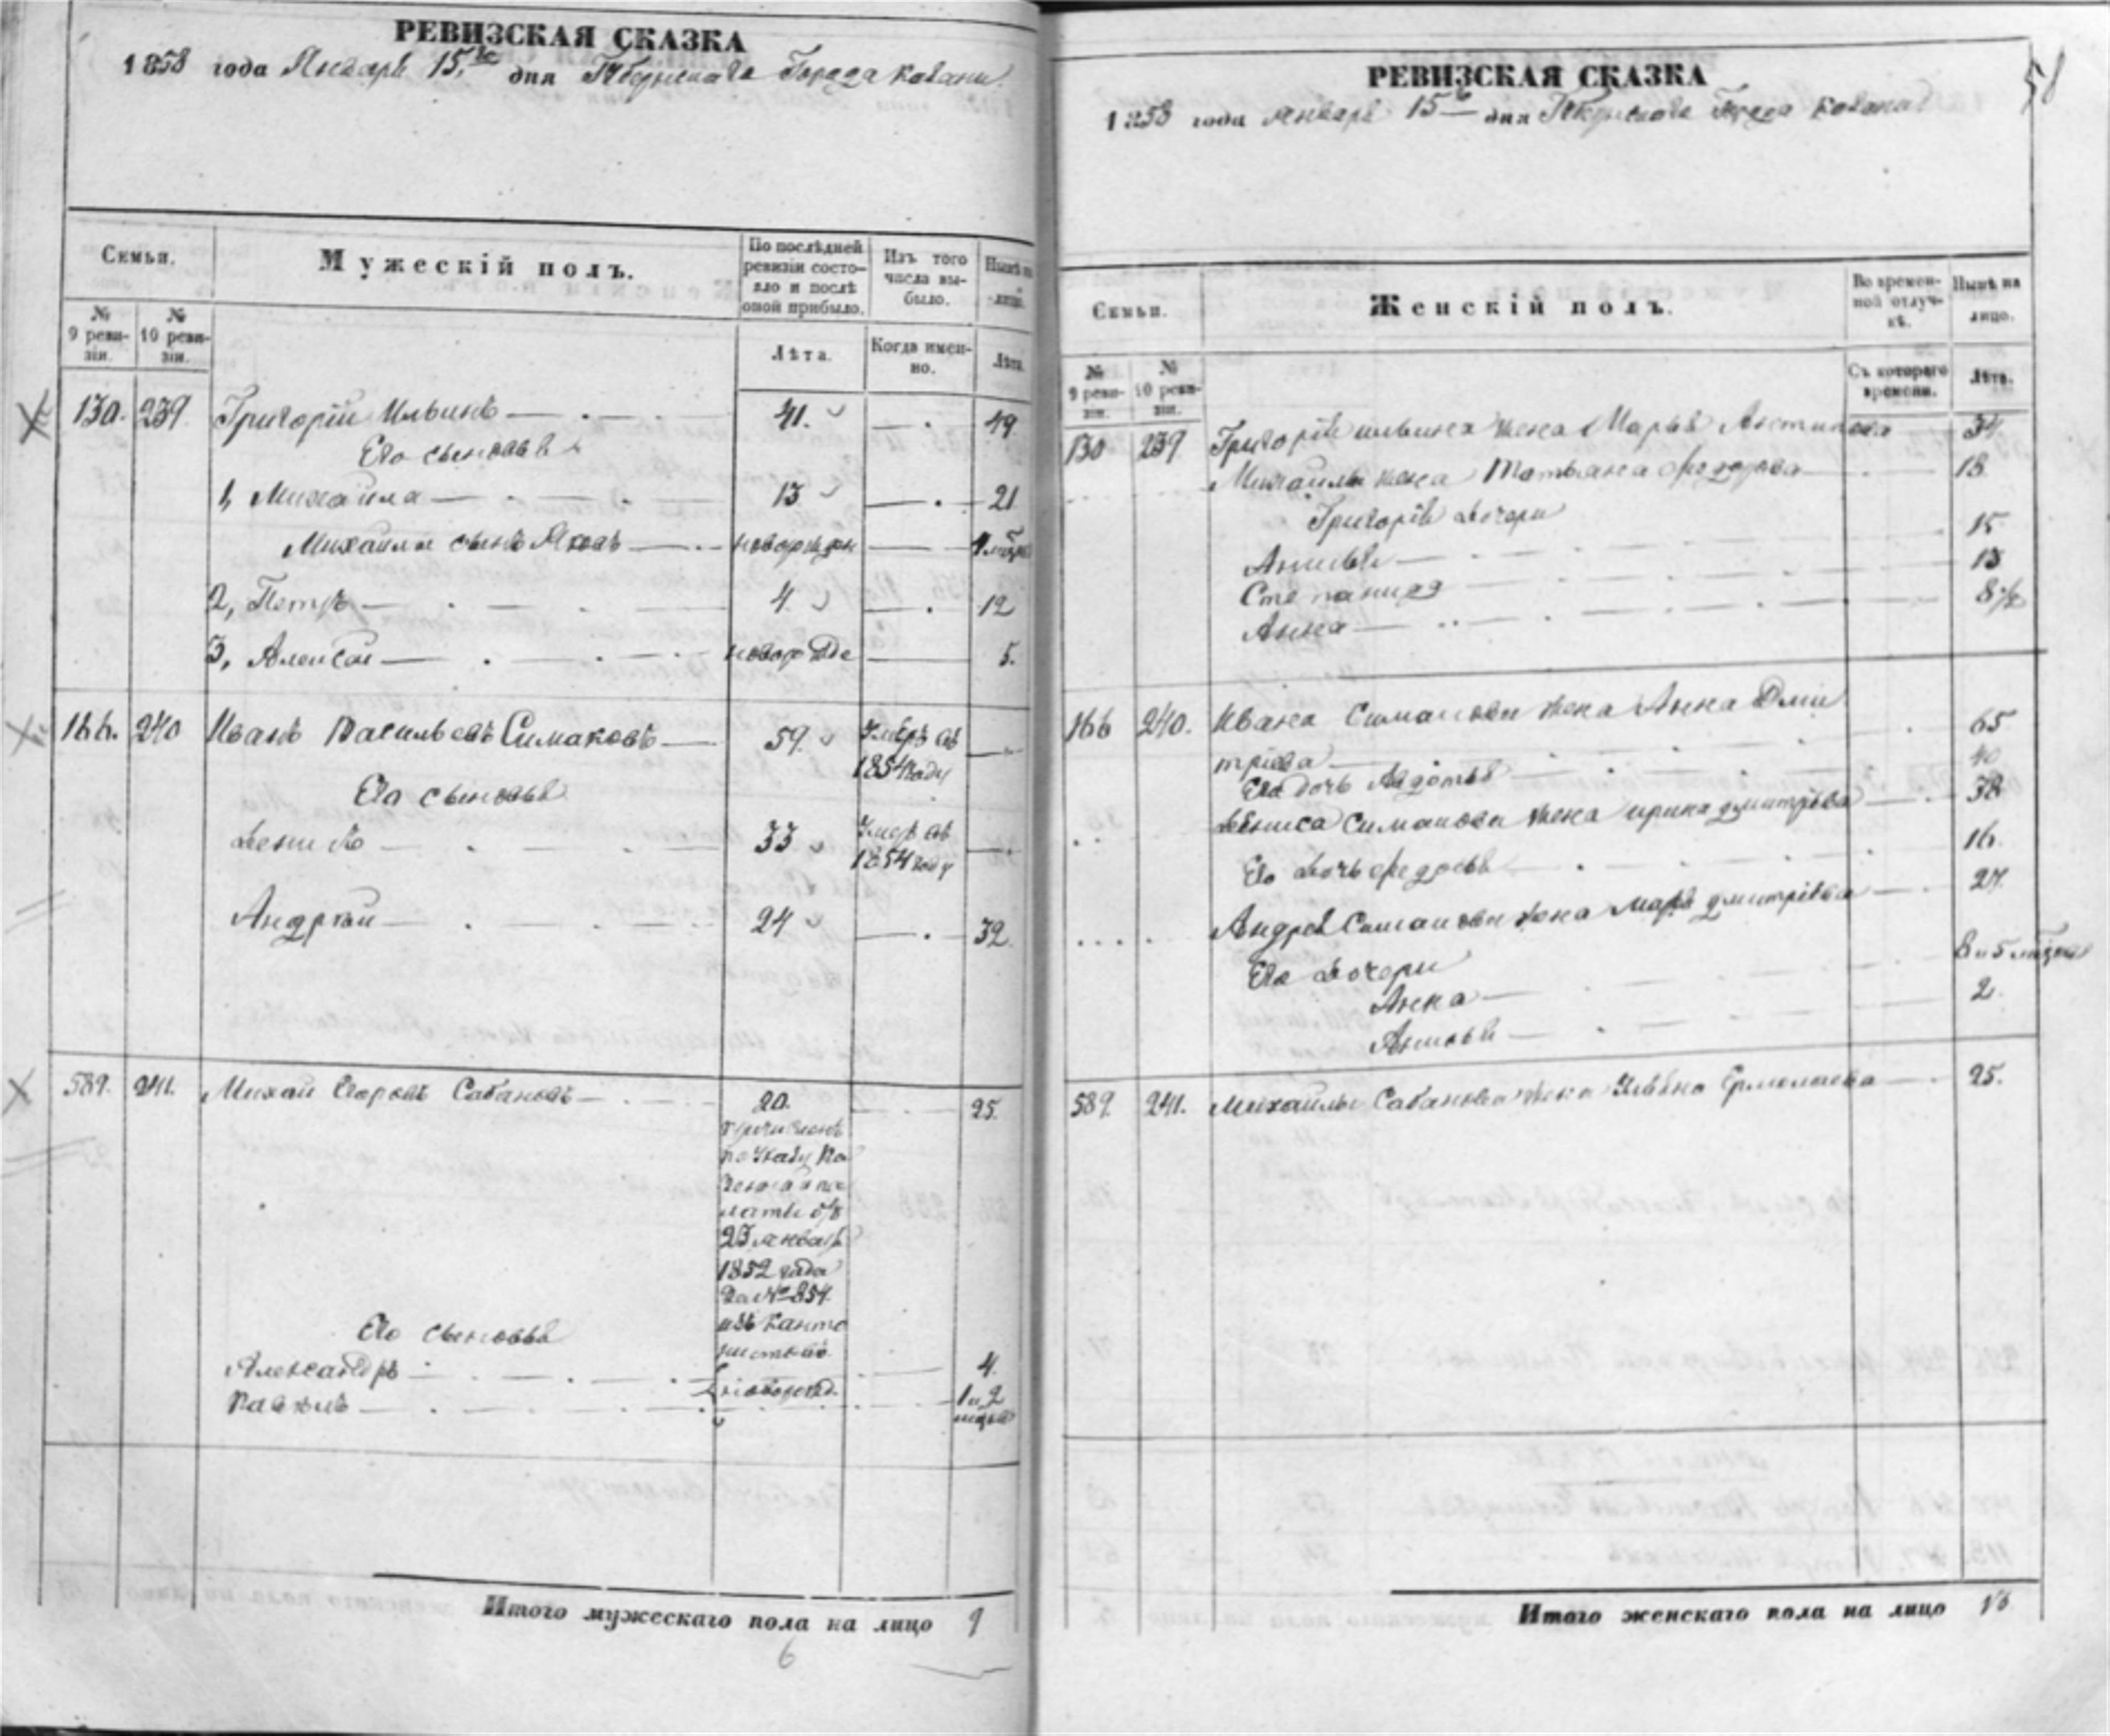 РЕВИЗСКАЯ СКАЗКА
1858 года Января 15го дня Губернскаго Города Казани
Семьи.
Мужескій полъ.
По послѣдней ревизіи состояло и послѣ оной прибыло.
Изъ того числа выбыло.
Нынѣ на лицо.
№ 9 ревизіи.
№ 10 ревизіи.
Лѣта.
Когда именно.
Лѣта.
130. 239 Григорій Ильинъ 41. 49
Его сыновья
1, Михайла 13 21
Михайлы сынъ Яковъ новорожден
2, Петръ 4 12
3, Алексѣй новорожде 5.
166. 240 Иванъ Васильевъ Симаковъ 59. Умеръ въ 1854 году
Его сыновья
Денисъ 33 Умеръ въ 1854 году
Андрей 24 32.
589. 241. Михай Егоровъ Сабановъ 20. 25.
причисленъ
по Указу Ка
зенной па
латы отъ
23 января
1852 года
за № 854
изъ канто
нистовъ
Его сыновья
Александръ 4.
новорожд.
Павелъ 1 и 2 месяца
Итого мужескаго пола на лицо 9
6
РЕВИЗСКАЯ СКАЗКА
58
1858 года Января 15го дня Губернскаго Города Казани
Семьи.
Женскій полъ.
Во временной отлучкѣ.
Нынѣ на лицо.
№ 9 ревизіи.
№ 10 ревизіи.
Съ котораго времени.
Лѣта.
130 239 Григорія Ильина жена Марья 34
Михайлы жена Татьяна Федорова 18
Григорія дочери
15
13
Степанида
Анна 8 1/2
166 240. Ивана Симакова жена Анна Дми
тріева 65
Его дочь Авдотья 40
Дениса Симакова жена Ирина Дмитріева 38
Его дочь Федосья 16.
Андрея Симакова жена Марья Дмитріева 27.
Его дочери
Анна 8 и 5 месяца
2
589. 241. Михайлы Сабанова жена Ульяна Ермолаева 25.
Итого женскаго пола на лицо